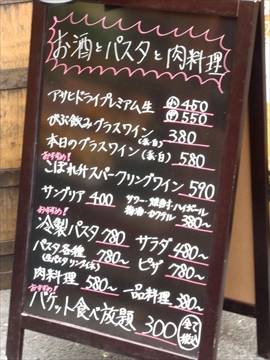 お酒とパスタと肉料理
アサヒドライプレミアム生 小 450
中 550
がぶ飲みグラスワイン(赤・白) 380
本日のグラスワイン(赤・白) 580
おすすめ!
こぼれ汁スパークリングワイン 590
サングリア 400 サワー・焼酎・ハイボール
梅酒・カクテル 380〜
おすすめ!
冷製パスタ 780 サラダ 480〜
パスタ各種 780〜 ピザ 780〜
(生パスタ リングイネ)
肉料理 580〜 一品料理 380〜
おすすめ!
バゲット食べ放題 300 全て税込